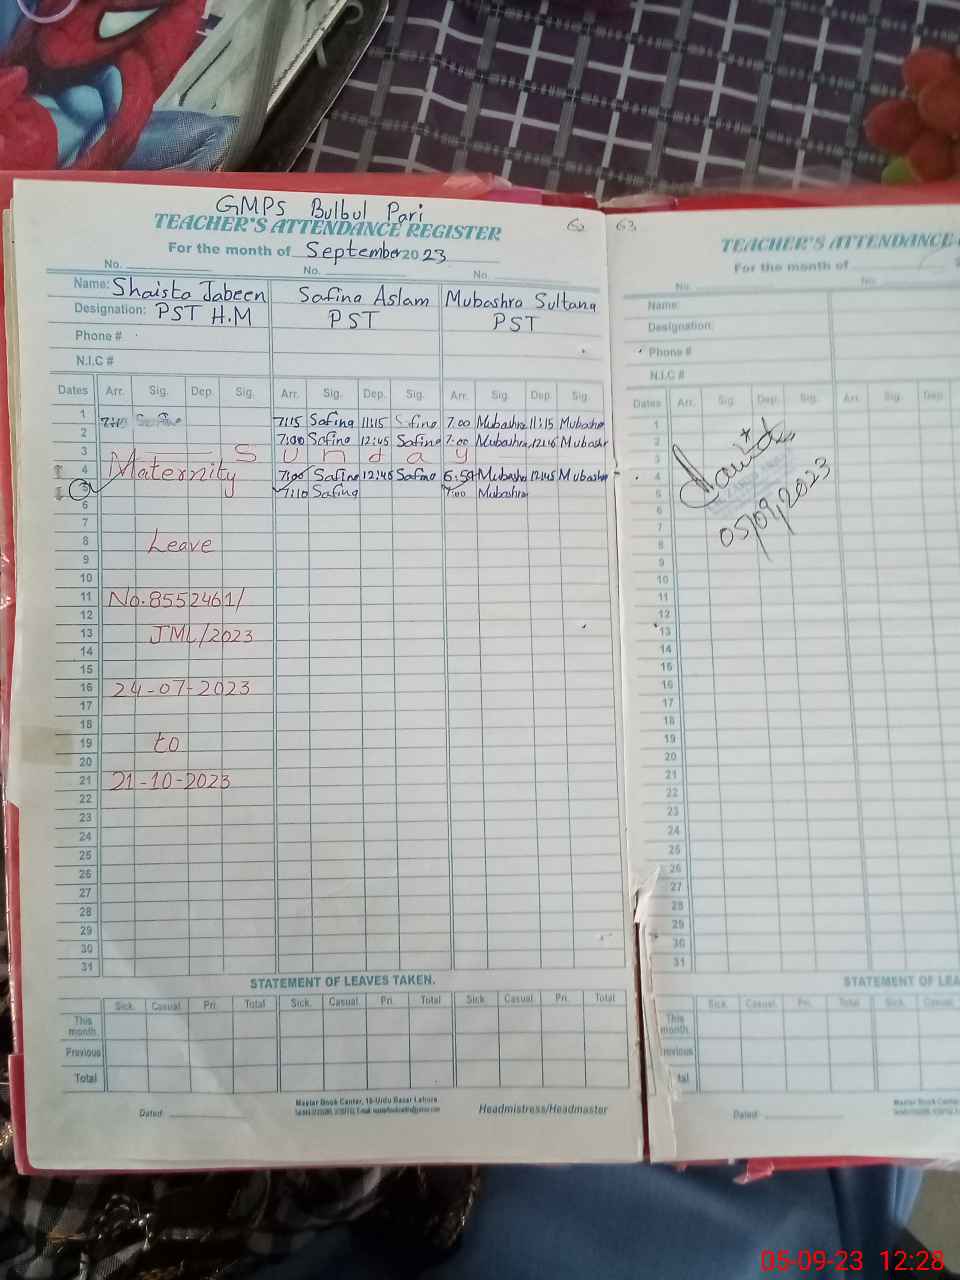 GMPS Bulbul Pari
TEACHER'S ATTENDANCE REGISTER 62
For the month of September 2023
No. No. No.
Name: Shaista Jabeen Safina Aslam Mubashra Sultana
Designation: PST H.M PST PST
Phone #
N.I.C #
Dates Arr. Sig. Dep. Sig. Arr. Sig. Dep. Sig. Arr. Sig. Dep. Sig.
1 7:15 Safina 11:15 Safina 7.00 Mubashra 11:15 Mubashra
2 7:00 Safina 12:45 Safina 7:00 Mubashra 12:46 Mubashr
3 S u n d a y
4 Maternity 7:00 Safina 12:45 Safina 6:59 Mubashra 12:45 Mubashra
5 7:10 Safina 7:00 Mubashra
6
7
8 Leave
9
10
11 No.8552461/
12
13 JML/2023
14
15
16 24-07-2023
17
18
19 to
20
21 21-10-2023
22
23
24
25
26
27
28
29
30
31
STATEMENT OF LEAVES TAKEN.
Sick. Casual. Pri. Total Sick. Casual. Pri. Total Sick. Casual. Pri. Total
This month
Previous
Total
Master Book Center, 16-Urdu Bazar Lahore
Dated: Headmistress/Headmaster
63
TEACHER'S ATTENDANCE
For the month of
No. No.
Name:
Designation:
Phone #
N.I.C #
Dates Arr. Sig. Dep. Sig. Arr. Sig.
1
2
3
4
5
6
7
8
9
10
11
12
13
14
15
16
17
18
19
20
21
22
23
24
25
26
27
28
29
30
31
05/09/2023
STATEMENT OF LEA
Sick. Casual. Pri. Total Sick. Casual.
This month
Previous
tal
Master Book Center
Dated:
05-09-23 12:28